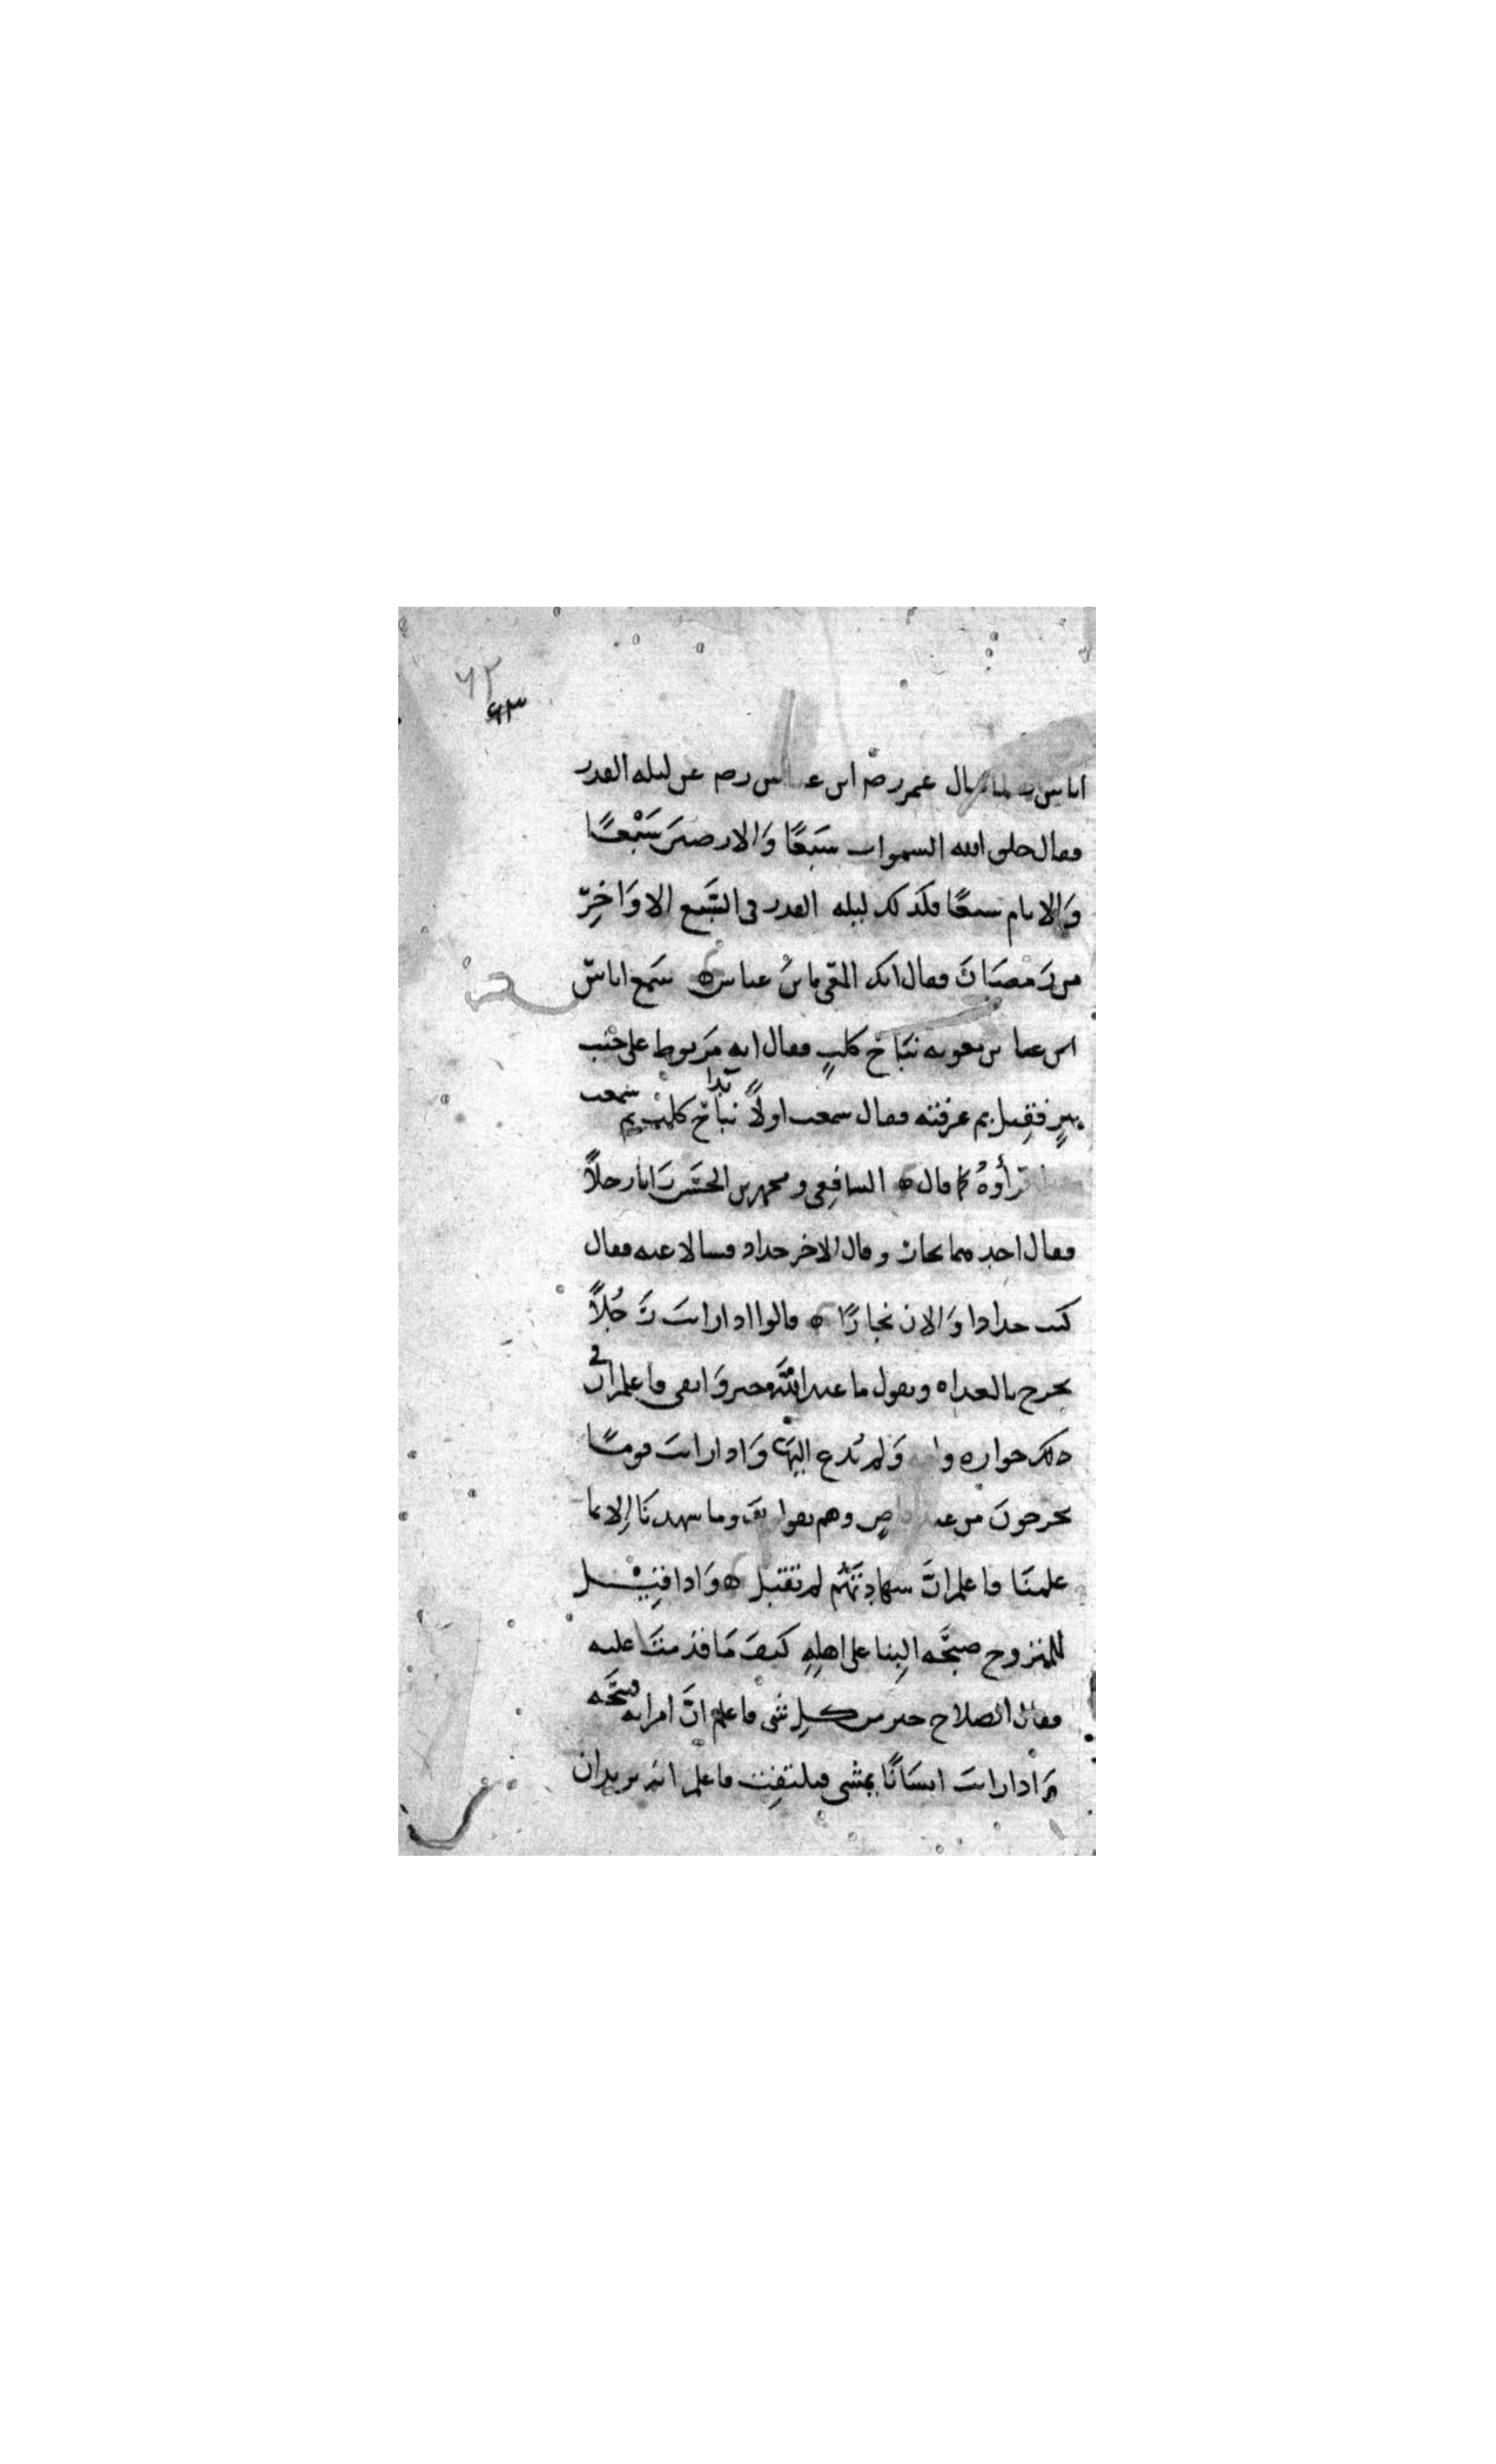 ٦٢
٦٣
اناس عمر رضه ابن عباس رضه عن ليله القدر
فقال خلق الله السموات سَبعًا وَالارضينَ سَبْعًا
وَالايام سبعًا فكذلك ليله القدر في السَّبع الاوَاخِرِ
من رَمضَانَ فقال انك لتقي يابنُ عباس سَمع اياسُ
ابن معويه نبَاحَ كلبٍ فقال انه مَربوط على جَنب
بيرٍ فقِيل بم عرفته فقال سمعت اولاً نباحَ كلبٍ ثم سمعت
كما قال الشافِعي ومحمد بن الحسَن رَايا رجلاً
فقال احدهما نجار وقال الاخر حداد فسالا عنه فقال
كنت حدادا وَالان نجارًا قالوا اذا رايتَ رَجُلاً
يخرج بالغداه ويقول ما عند اللَّه خير وَابقى فاعلم انَّ في
جواره وَلم يُدع اليهَا وَاذا رايتَ قومًا
يخرجونَ من عند قاضٍ وهم يقولون وما شهدنَا اِلا بما
علمنَا فاعلم انَّ شهادتَهُم لم تقبل وَاذا قِيْل
للمتزوج صبيحَه البِنا على اهلِهِ كيفَ مَا قدمتَ عليه
فقال الصلاح خير من كلِ شى فاعلم انَّ امراته قبيحَه
وَاذا رايتَ انسَانًا يمشي ويلتفِت فاعلم انه يريد ان